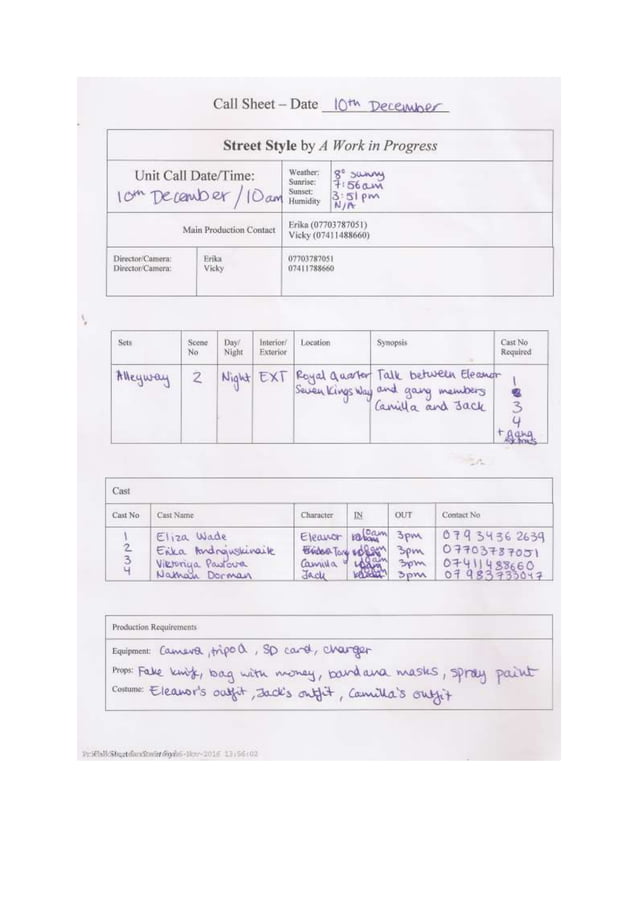 Call Sheet – Date 10th December
Street Style by A Work in Progress
Unit Call Date/Time:
10th December/10am
Weather: 8° sunny
Sunrise: 7:56am
Sunset: 3:51pm
Humidity N/A
Main Production Contact
Erika (07703787051)
Vicky (07411488660)
Director/Camera: Erika 07703787051
Director/Camera: Vicky 07411788660
Sets Scene No Day/Night Interior/Exterior Location Synopsis Cast No Required
Alleyway 2 Night EXT Royal Quarter Talk between Eleanor 1
Seven Kings Way and gang members
Camilla and Jack 3
4
+ gang
Cast
Cast No Cast Name Character IN OUT Contact No
1 Eliza Wade Eleanor 10am 3pm 079 3436 2639
2 Erika 3pm 07703787051
3 Viktoriya Pavlova Camilla 10am 3pm 07411488660
4 Nathan Dorman Jack 3pm 07983733047
Production Requirements
Equipment: Camera, tripod, SD card, charger
Props: Fake knif, bag with money, bandana masks, spray paint
Costume: Eleanor's outfit, Jack's outfit, Camilla's outfit
-Nov-2016 13:56:02